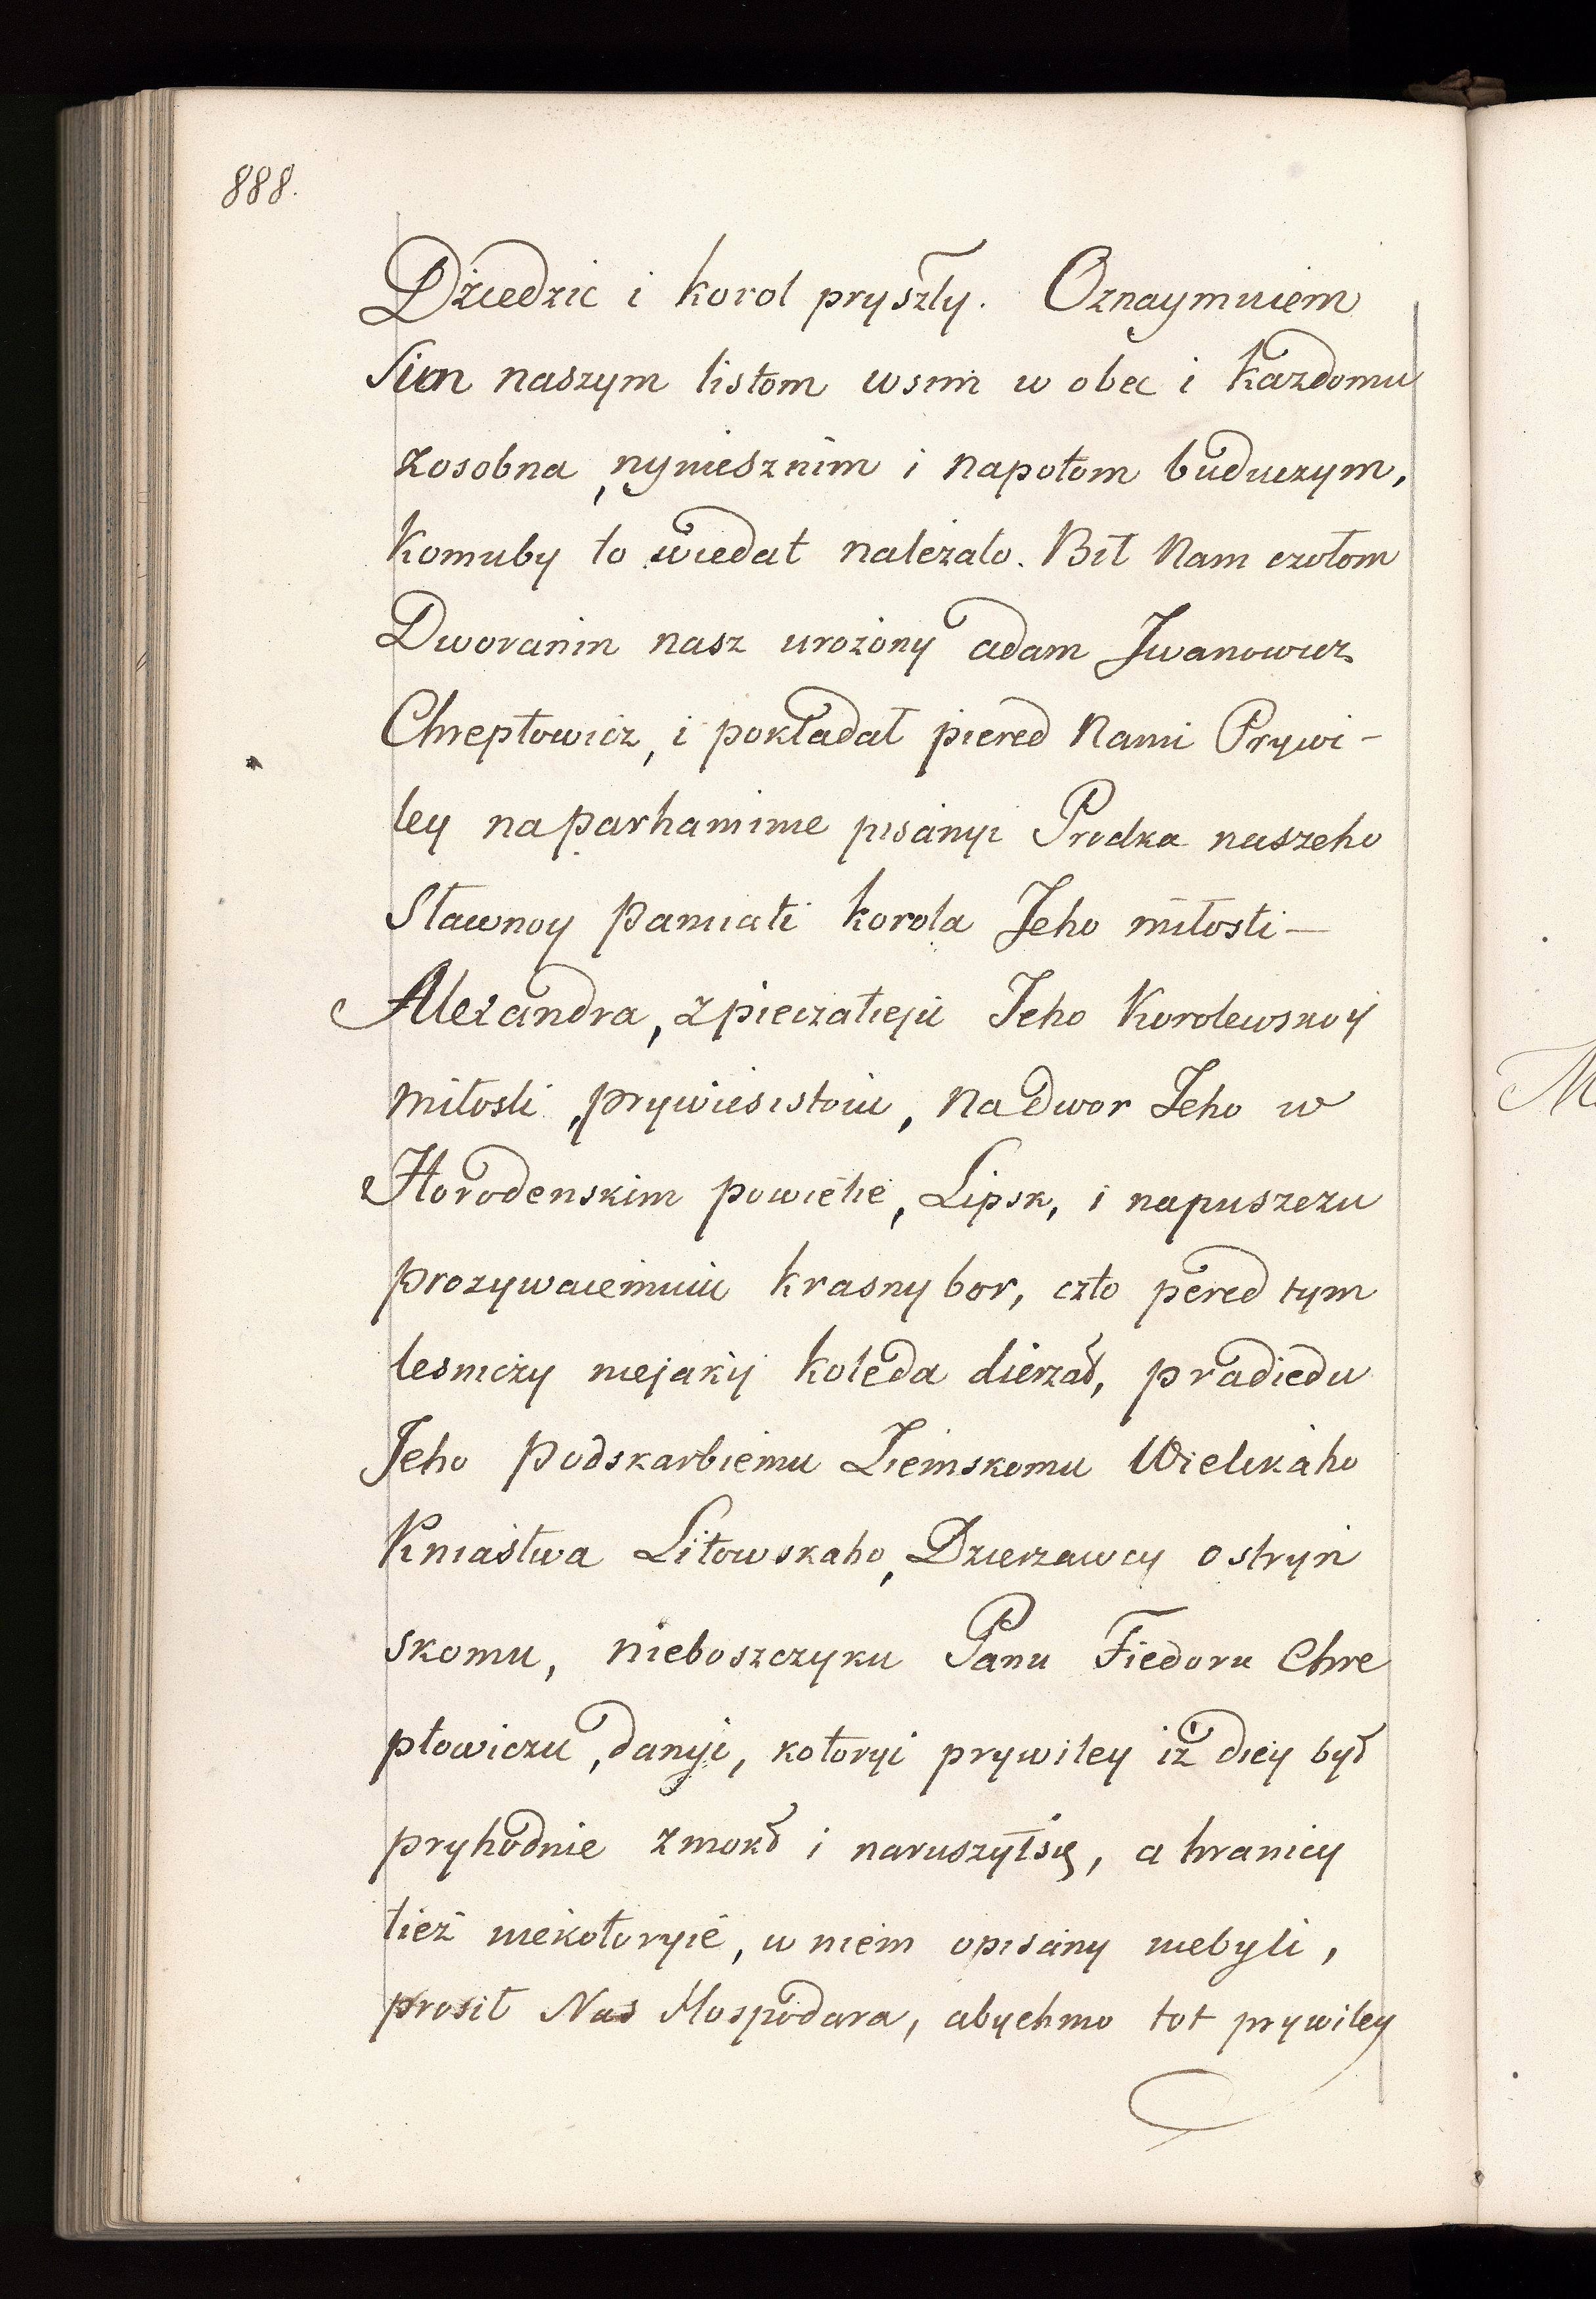 888.
Dziedzic i korol pryszły. Oznaymuiem
Sim naszym listom wsim w obec i każdomu
zosobna, nynieszním i napotom buduczym,
Komuby to wiedat należało. Bił Nam czołom
Dworanin nasz urożony adam Jwanowicz
Chreptowicz, i pokładał piered Nami Prywi-
ley na parhaminie pisanyi Prodka naszeho
Sławnoy Pamiati korola Jeho miłosti-
Alexandra, z pieczatieju Jeho Korolewskoy
miłosti, prywiesistoiu, na Dwor Jeho w
Horodenskim powietie, Lipsk, i na puszczu
prozywaiemuiu krasny bor, czto pered tym
lesniczy niejakij koleda dierżał, pradiedu
Jeho Podskarbiemu Ziemskomu Wielikaho
Kniastwa Litowskaho, Dzierzawcy ostryn
skomu, nieboszczyku Panu Fiedoru Chre
ptowiczu, danyi, kotoryi prywiley iż diey był
pryhodnie zmokł i naruszyłsię, a hranicy
tież niekotoryie, w niem opisany niebyli,
prosił Nas Hospodara, abychmo tot prywiley
M